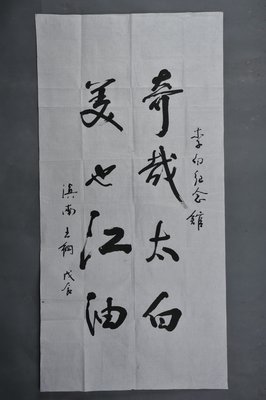 李白纪念馆
奇哉太白
美也江油
滇南王翔戊辰